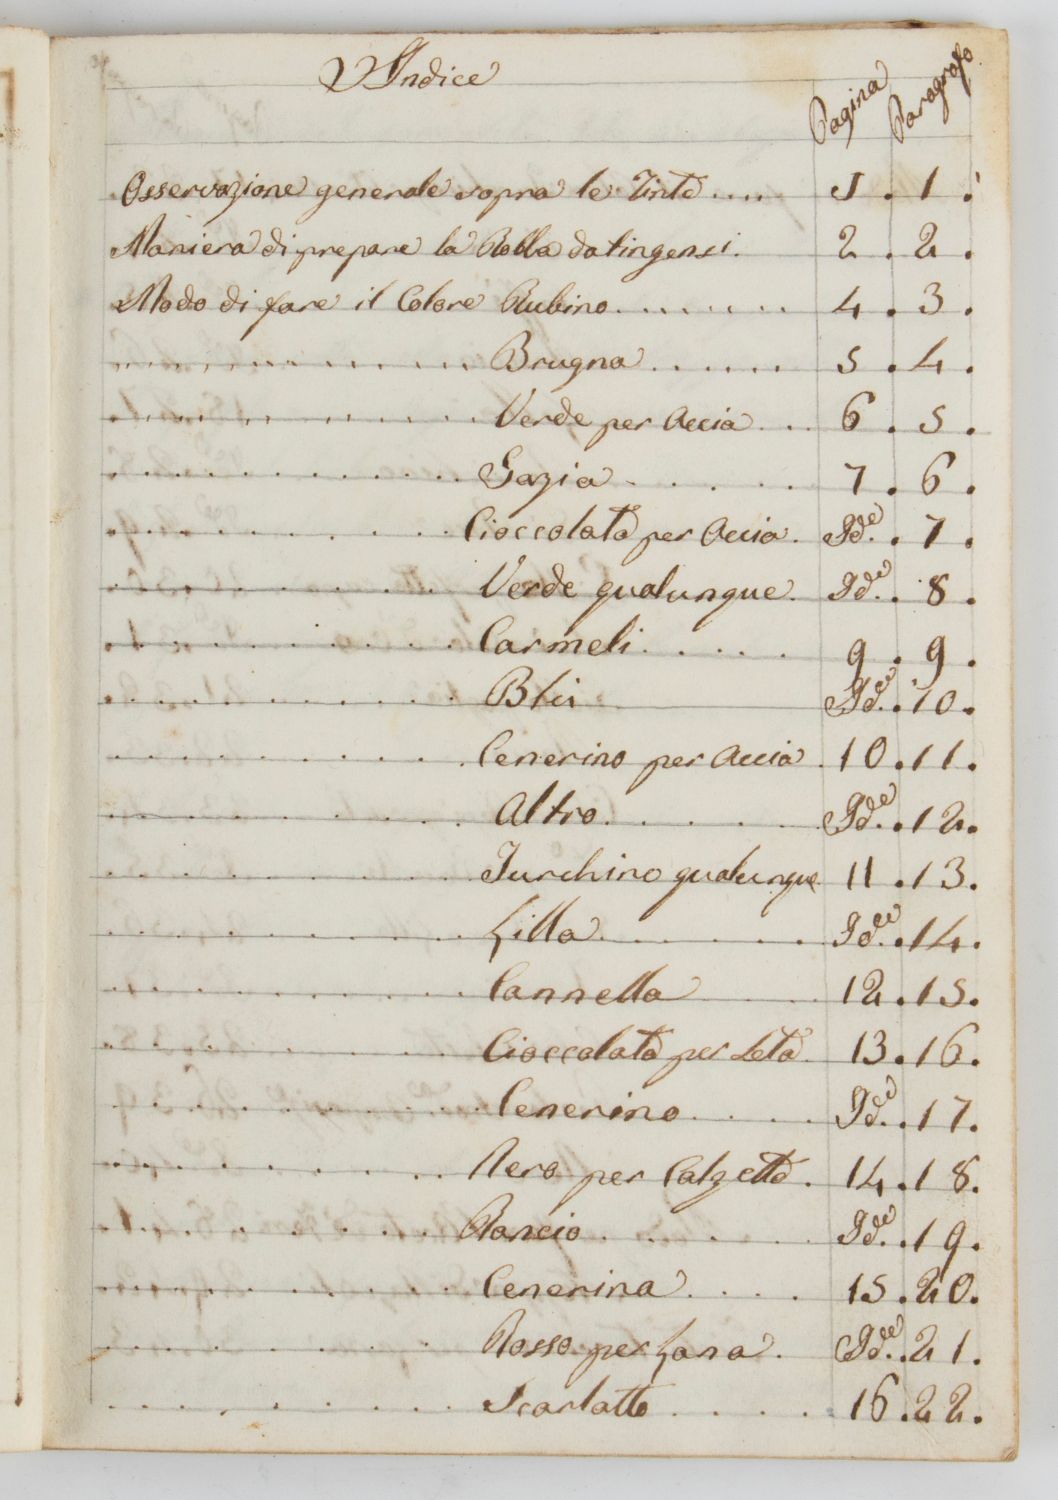 Indice
Pagina Paragrafo
Osservazione generale sopra le Tinte..... 1 . 1 .
Maniera di prepare la Robba da tingersi. 2 . 2 .
Modo di fare il Colore Rubino......... 4 . 3 .
Brugna ...... 5 . 4 .
Verde per Accia ... 6 . 5 .
Gazia ...... 7 . 6 .
Cioccolata per Accia . Id.e . 7 .
Verde qualunque . Id.e . 8 .
Carmeli ..... 9 . 9 .
Blù Id.e . 10 .
Cenerino per Accia . 10 . 11 .
Altro ..... Id.e . 12 .
Turchino qualunque 11 . 13 .
Lilla ..... Id.e . 14 .
Cannella ... 12 . 15 .
Cioccolata per Seta 13 . 16 .
Cenerino .... Id.e . 17 .
Nero per Calzette . 14 . 18 .
Rancio ..... Id.e . 19 .
Cenerina .... 15 . 20 .
Rosso per Lana . Id.e . 21 .
Scarlatto .... 16 . 22 .